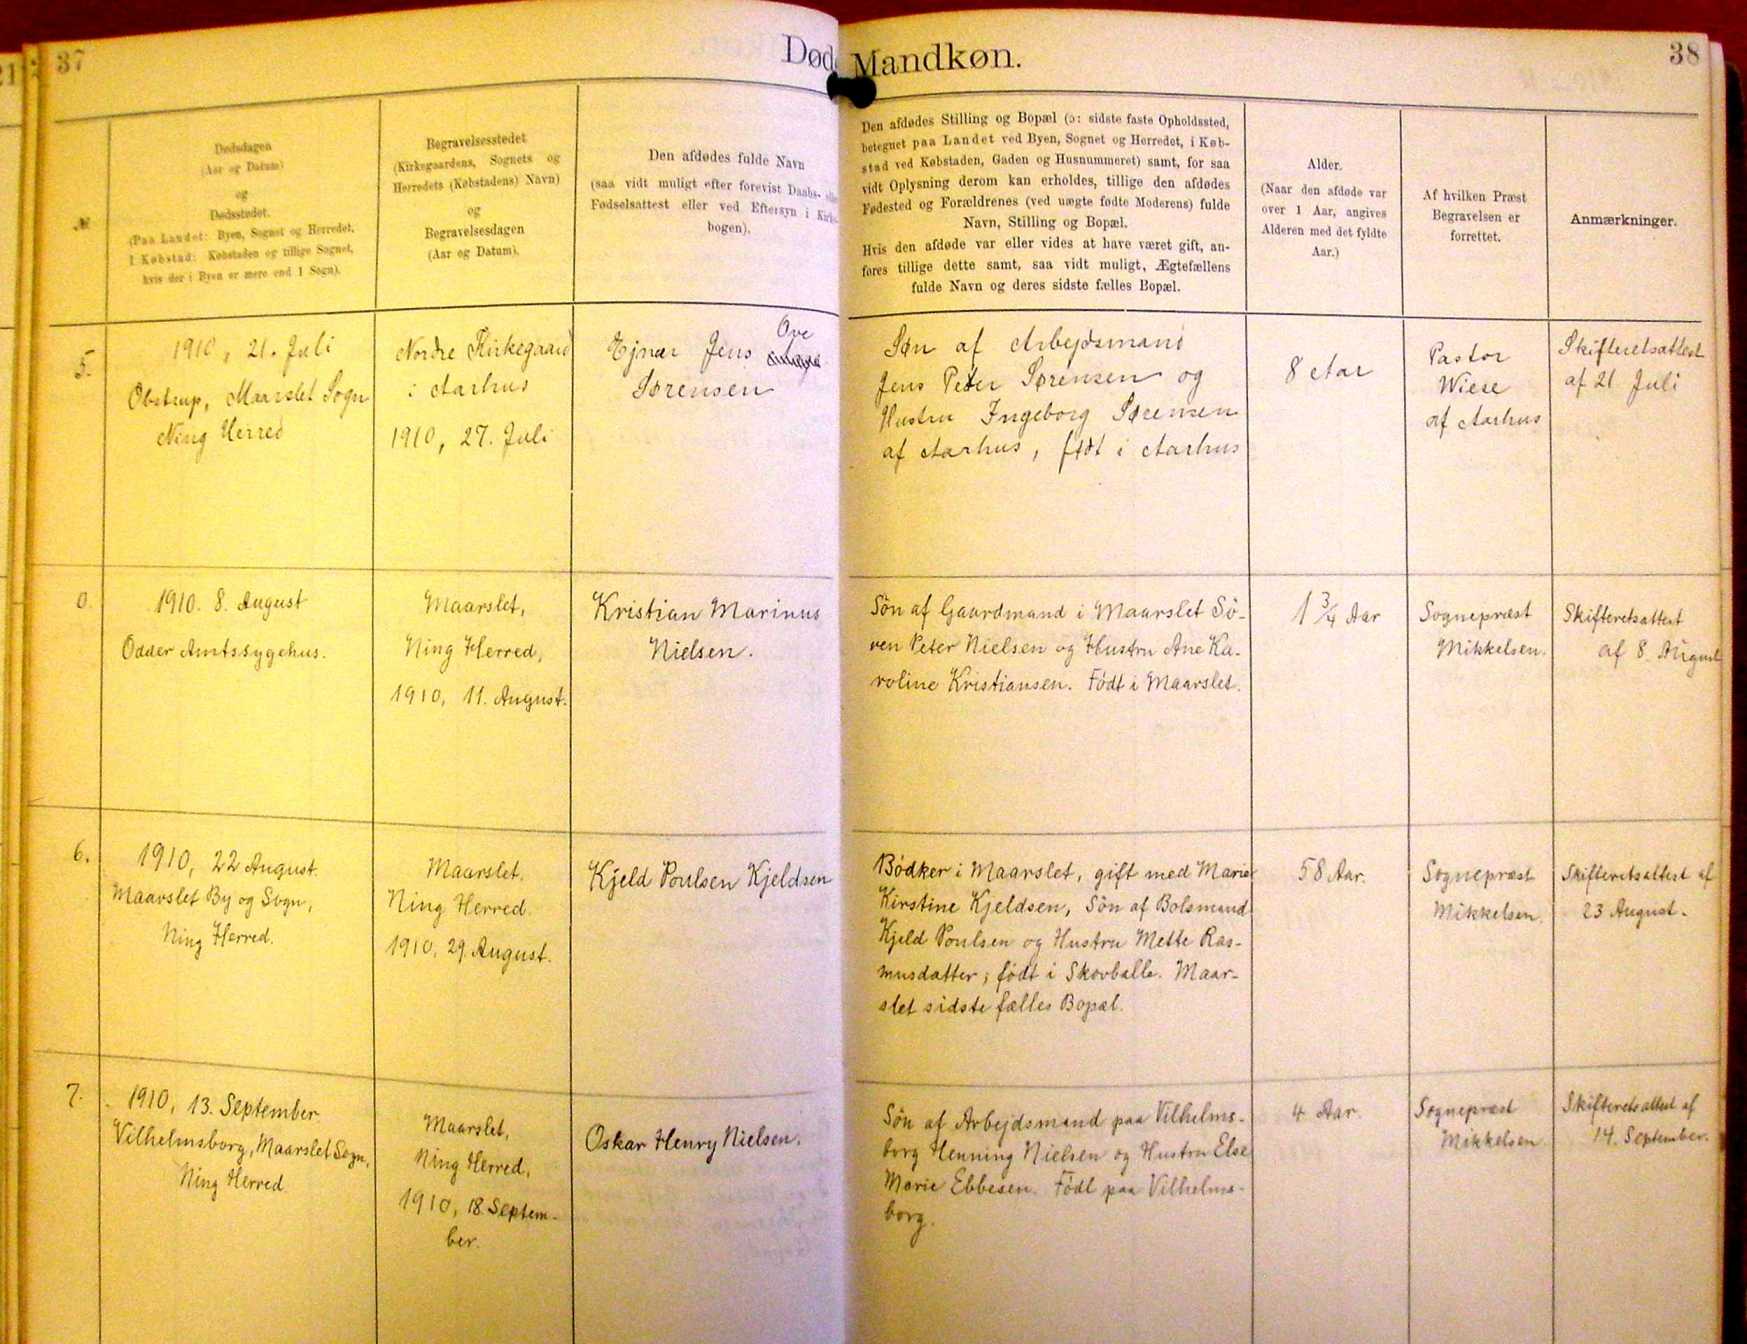 37
Døde
Mandkøn.
38
№
Dødsdagen
(Aar og Datum)
og
Dødsstedet.
(Paa Landet: Byen, Sognet og Herredet,
I Købstad: Købstaden og tillige Sognet,
hvis der i Byen er mere end 1 Sogn).
Begravelsesstedet
(Kirkegaardens, Sognets og
Herredets (Købstadens) Navn)
og
Begravelsesdagen
(Aar og Datum).
Den afdødes fulde Navn
(saa vidt muligt efter forevist Daabs-
Fødselsattest eller ved Eftersyn i
bogen).
Den afdødes Stilling og Bopæl (ɔ: sidste faste Opholdssted,
betegnet paa Landet ved Byen, Sognet og Herredet, i Køb-
stad ved Købstaden, Gaden og Husnummeret) samt, for saa
vidt Oplysning derom kan erholdes, tillige den afdødes
Fødested og Forældrenes (ved uægte fødte Moderens) fulde
Navn, Stilling og Bopæl.
Hvis den afdøde var eller vides at have været gift, an-
føres tillige dette samt, saa vidt muligt, Ægtefællens
fulde Navn og deres sidste fælles Bopæl.
Alder.
(Naar den afdøde var
over 1 Aar, angives
Alderen med det fyldte
Aar.)
Af hvilken Præst
Begravelsen er
forrettet.
Anmærkninger.
5.
1910, 21. Juli
Obstrup, Maarslet Sogn
Ning Herred
Nordre Kirkegaard
i Aarhus
1910, 27. Juli
Ove
Ejnar Jens
Sørensen
Søn af Arbejdsmand
Jens Peter Sørensen og
Hustru Ingeborg Sørensen
af Aarhus, født i Aarhus
8 Aar
Pastor
Wiese
af Aarhus
Skifteretsattest
af 21 Juli
0.
1910. 8. August
Odder Amtssygehus.
Maarslet,
Ning Herred,
1910, 11. August.
Kristian Marinus
Nielsen.
Søn af Gaardmand i Maarslet Sö-
ren Peter Nielsen og Hustru Ane Ka-
roline Kristiansen. Födt i Maarslet.
1 3/4 Aar
Sognepræst
Mikkelsen.
Skifteretsattest
af 8. August
6.
1910, 22 August.
Maarslet By og Sogn,
Ning Herred.
Maarslet.
Ning Herred.
1910, 29. August.
Kjeld Poulsen Kjeldsen
Bödker i Maarslet, gift med Marie
Kirstine Kjeldsen, Sön af Bolsmand
Kjeld Poulsen og Hustru Mette Ras-
musdatter; födt i Skovballe. Maar-
slet sidste fælles Bopæl.
58 Aar.
Sognepræst
Mikkelsen.
Skifteretsattest af
23 August.
7.
1910, 13. September
Vilhelmsborg, Maarslet Sogn,
Ning Herred
Maarslet,
Ning Herred,
1910, 18. Septem-
ber.
Oskar Henry Nielsen.
Sön af Arbejdsmand paa Vilhelms-
borg Henning Nielsen og Hustru Else
Marie Ebbesen. Födt paa Vilhelms-
borg.
4 Aar.
Sognepræst
Mikkelsen
Skifteretsattest af
14. September.